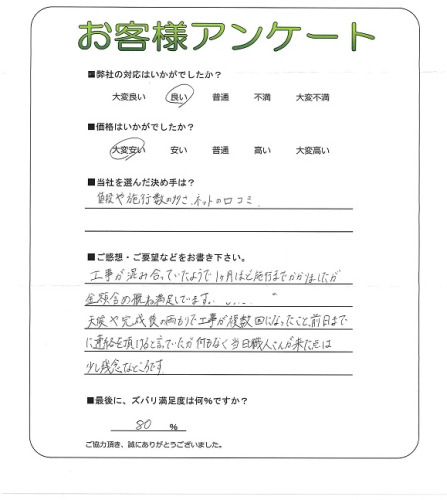 お客様アンケート
■弊社の対応はいかがでしたか？
大変良い 良い 普通 不満 大変不満
■価格はいかがでしたか？
大変安い 安い 普通 高い 大変高い
■当社を選んだ決め手は？
値段や施行数の多さ、ネットの口コミ
■ご感想・ご要望などをお書き下さい。
工事が混み合っていたようで1ヶ月ほど施行までかかりましたが
金額含め概ね満足しています。
天候や完成後の雨もりで工事が複数回になったこと、前日まで
に連絡を頂けると言っていたが何もなく当日職人さんが来た点は
少し残念なところです
■最後に、ズバリ満足度は何%ですか？
80 %
ご協力頂き、誠にありがとうございました。